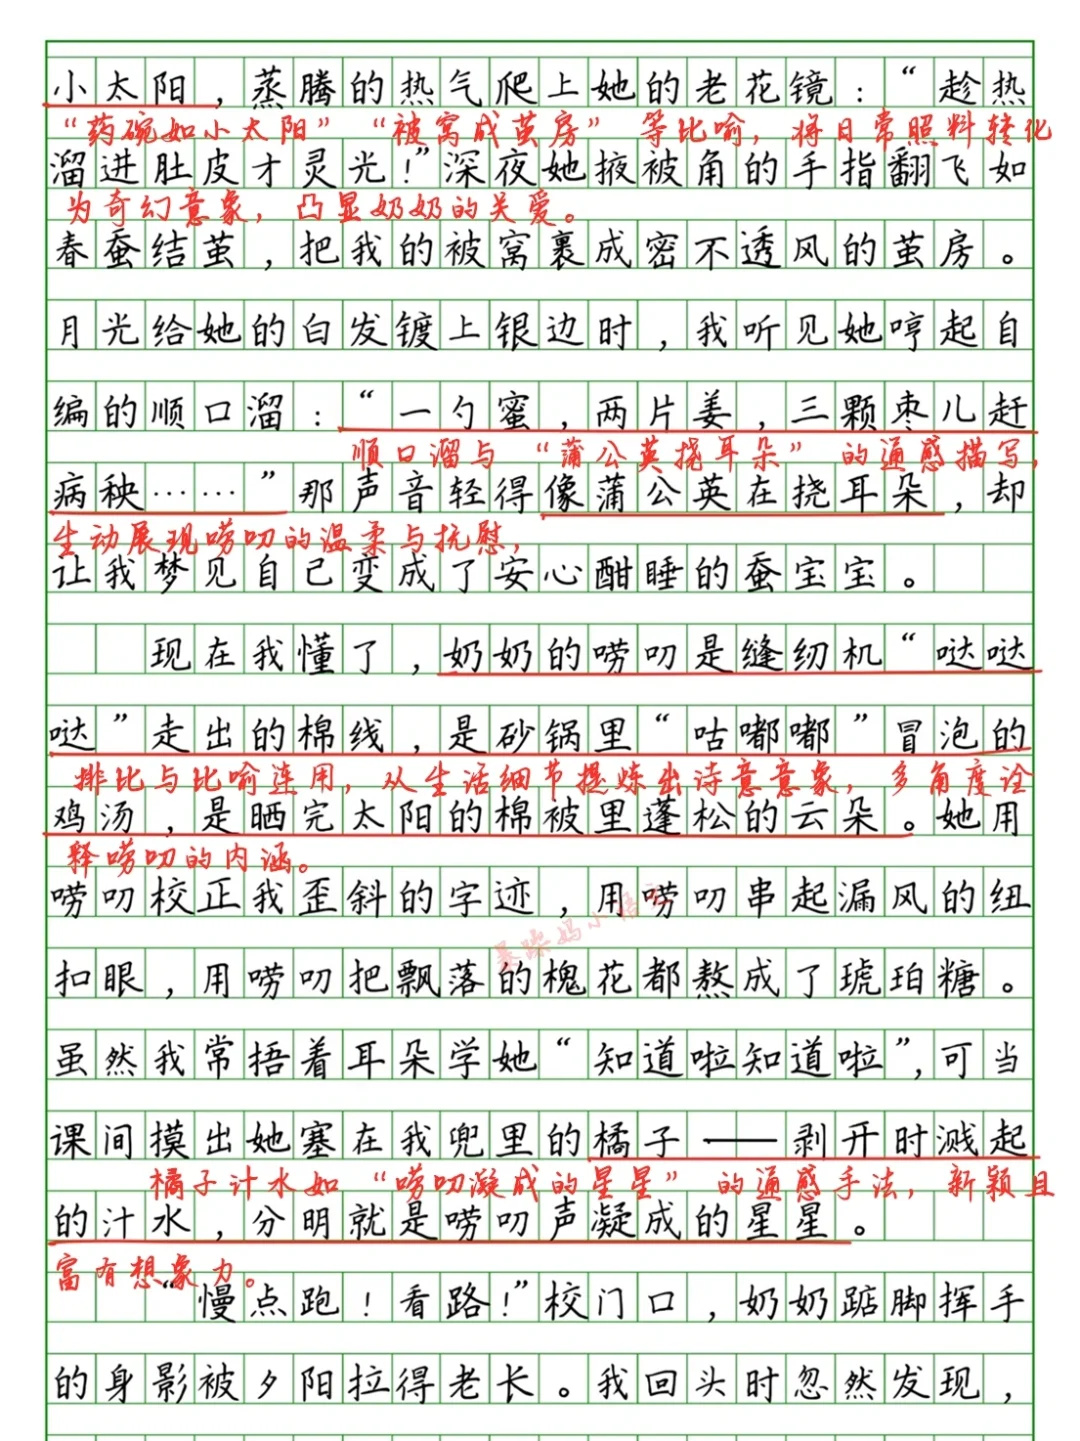 小太阳，蒸腾的热气爬上她的老花镜：“趁热
“药碗如小太阳”“被窝成茧房”等比喻，将日常照料转化
溜进肚皮才灵光！”深夜她掖被角的手指翻飞如
为奇幻意象，凸显奶奶的关爱。
春蚕结茧，把我的被窝裹成密不透风的茧房。
月光给她的白发镀上银边时，我听见她哼起自
编的顺口溜：“一勺蜜，两片姜，三颗枣儿赶
顺口溜与“蒲公英挠耳朵”的通感描写，
病秧……”那声音轻得像蒲公英在挠耳朵，却
生动展现唠叨的温柔与抚慰，
让我梦见自己变成了安心酣睡的蚕宝宝。
现在我懂了，奶奶的唠叨是缝纫机“哒哒
哒”走出的棉线，是砂锅里“咕嘟嘟”冒泡的
排比与比喻连用，从生活细节提炼出诗意意象，多角度诠
鸡汤，是晒完太阳的棉被里蓬松的云朵。她用
释唠叨的内涵。
唠叨校正我歪斜的字迹，用唠叨串起漏风的纽
扣眼，用唠叨把飘落的槐花都熬成了琥珀糖。
虽然我常捂着耳朵学她“知道啦知道啦”，可当
课间摸出她塞在我兜里的橘子——剥开时溅起
橘子汁水如“唠叨凝成的星星”的通感手法，新颖且
的汁水，分明就是唠叨声凝成的星星。
富有想象力。
“慢点跑！看路！”校门口，奶奶踮脚挥手
的身影被夕阳拉得老长。我回头时忽然发现，